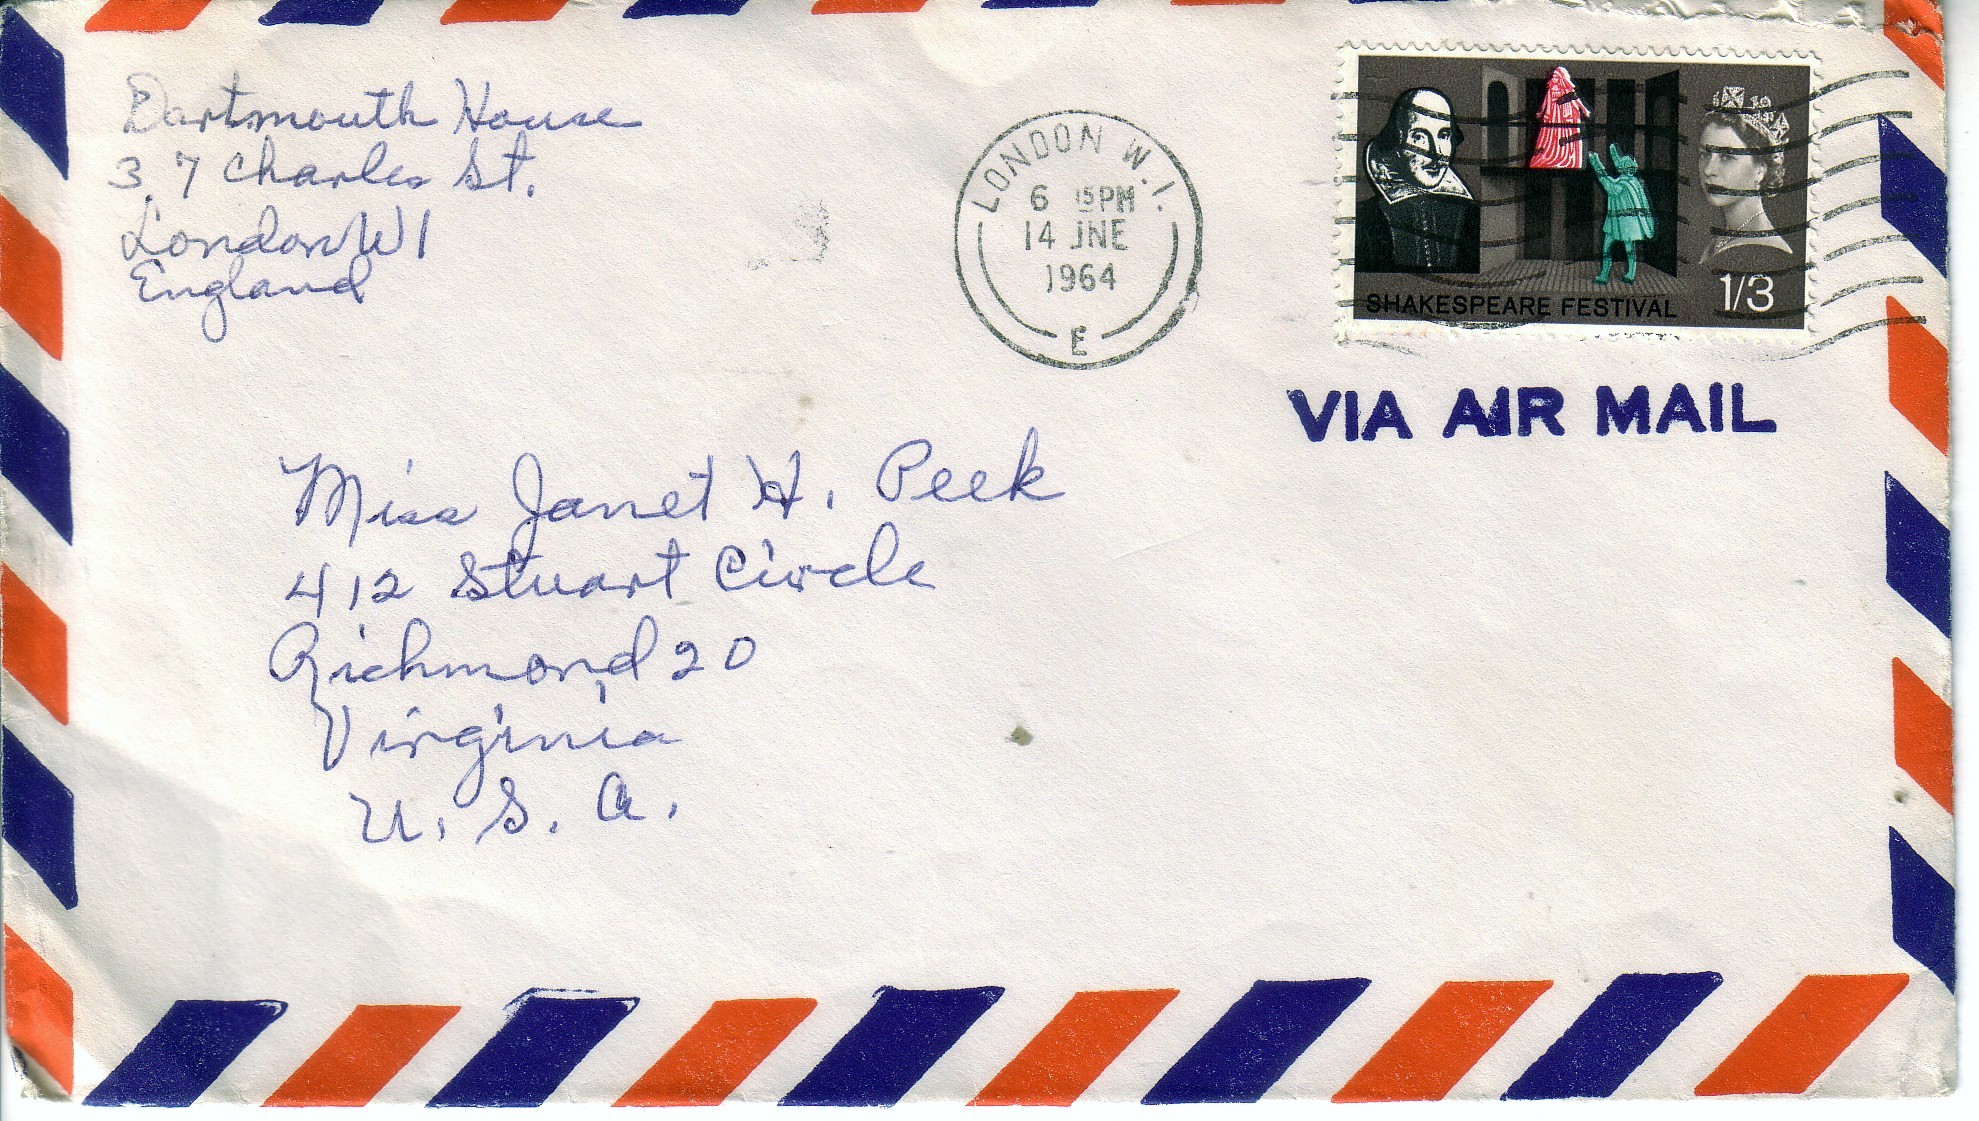 Dartmouth House
37 Charles St.
London W1
England
LONDON W.1.
6 15PM
14 JNE
1964
E
SHAKESPEARE FESTIVAL
1/3
VIA AIR MAIL
Miss Janet H. Peek
412 Stuart Circle
Richmond 20
Virginia
U.S.A.